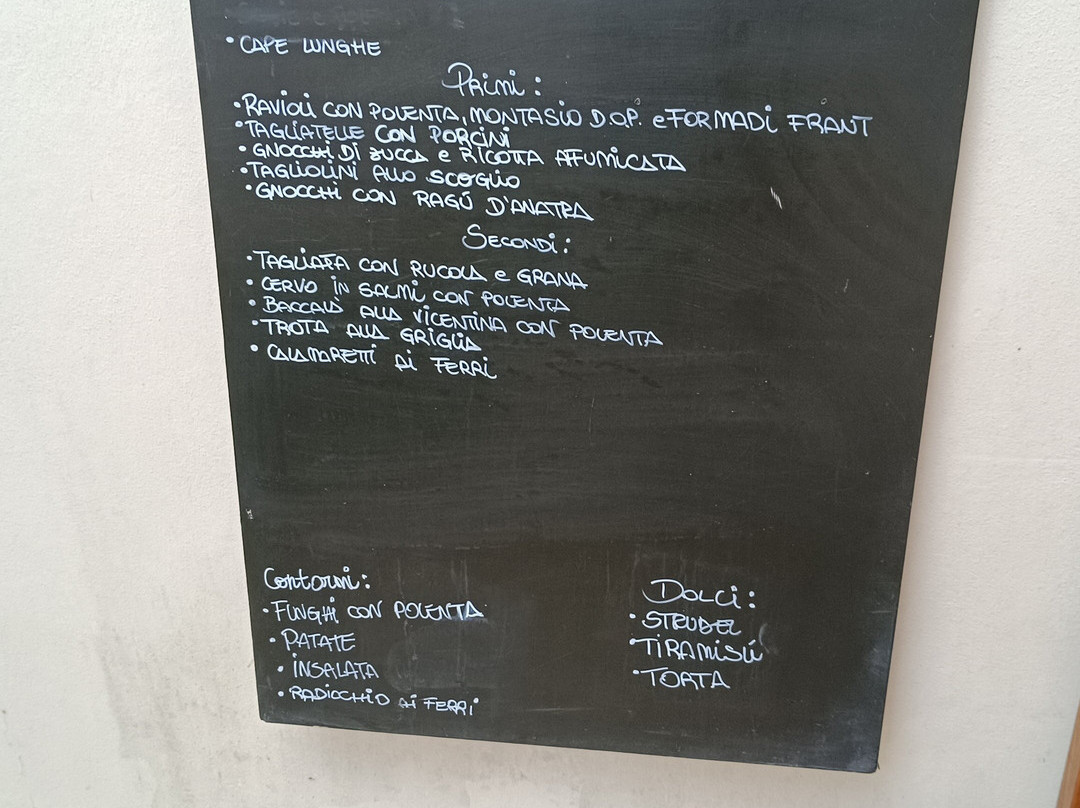 • CAPE LUNGHE
Primi:
• RAVIOLI CON POLENTA, MONTASIO D.O.P. e FORMADI FRANT
• TAGLIATELLE CON PORCINI
• GNOCCHI DI ZUCCA e RICOTTA AFFUMICATA
• TAGLIOLINI ALLO SCOGLIO
• GNOCCHI CON RAGÚ D'ANATRA
SECONDI:
• TAGLIATA CON RUCOLA e GRANA
• CERVO IN SALMÌ CON POLENTA
• BACCALÀ ALLA VICENTINA CON POLENTA
• TROTA ALLA GRIGLIA
• CALAMARETTI AI FERRI
Contorni:
• FUNGHI CON POLENTA
• PATATE
• INSALATA
• RADICCHIO AI FERRI
DOLCI:
• STRUDEL
• TIRAMISÚ
• TORTA